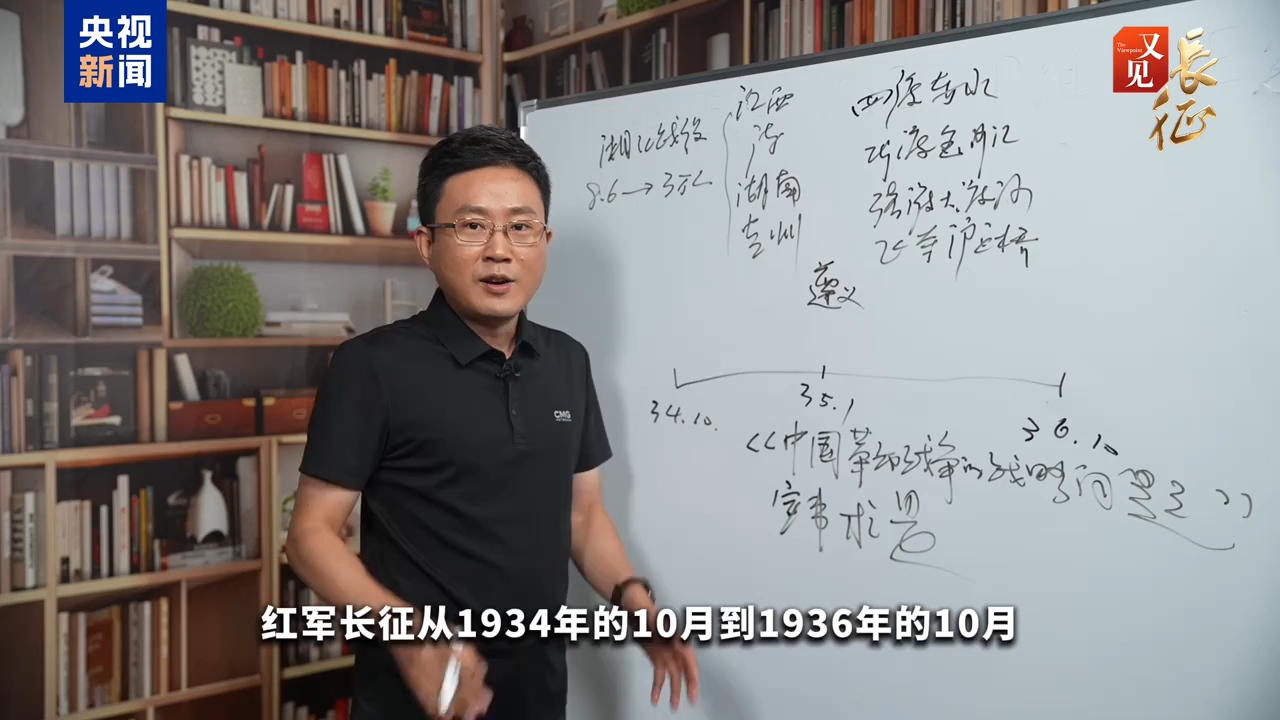 央视
新闻
The Viewpoint
又见
长征
湘江战役
8.6→3万人
江西
湖南
贵州
四渡赤水
巧渡金沙江
强渡大渡河
飞夺泸定桥
遵义
34.10.
35.1
36.10
《中国革命战争的战略问题》
实事求是
CMG
红军长征从1934年的10月到1936年的10月